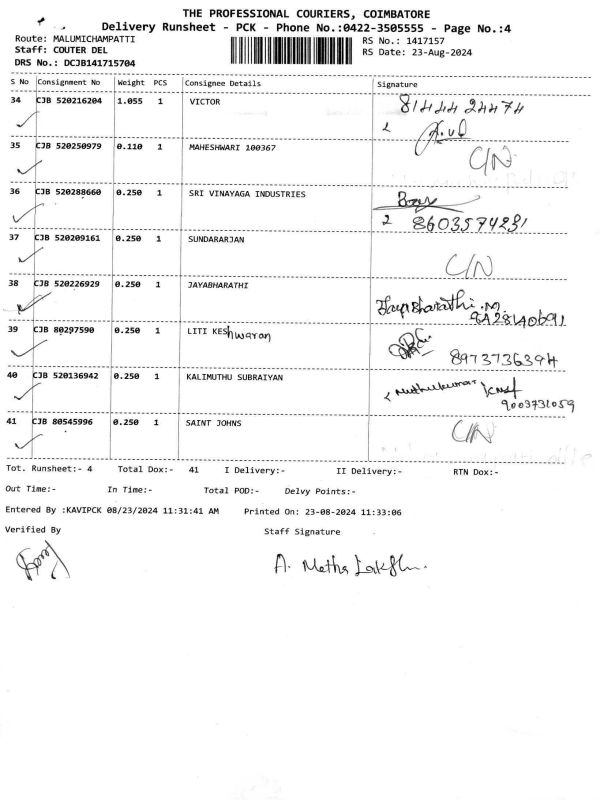 THE PROFESSIONAL COURIERS, COIMBATORE
Delivery Runsheet - PCK - Phone No.:0422-3505555 - Page No.:4
Route: MALUMICHAMPATTI RS No.: 1417157
Staff: COUTER DEL RS Date: 23-Aug-2024
DRS No.: DCJB141715704
S No Consignment No Weight PCS Consignee Details Signature
34 CJB 520216204 1.055 1 VICTOR 8144424474
35 CJB 520250979 0.110 1 MAHESHWARI 100367 C/N
36 CJB 520288660 0.250 1 SRI VINAYAGA INDUSTRIES
8603574231
37 CJB 520209161 0.250 1 SUNDARARJAN C/N
38 CJB 520226929 0.250 1 JAYABHARATHI Jayabharathi.M.
39 CJB 80297590 0.250 1 LITI KEShwaran
8973736394
40 CJB 520136942 0.250 1 KALIMUTHU SUBRAIYAN Muthukumar
9003731059
41 CJB 80545996 0.250 1 SAINT JOHNS C/N
Tot. Runsheet:- 4 Total Dox:- 41 I Delivery:- II Delivery:- RTN Dox:-
Out Time:- In Time:- Total POD:- Delvy Points:-
Entered By :KAVIPCK 08/23/2024 11:31:41 AM Printed On: 23-08-2024 11:33:06
Verified By Staff Signature
A.